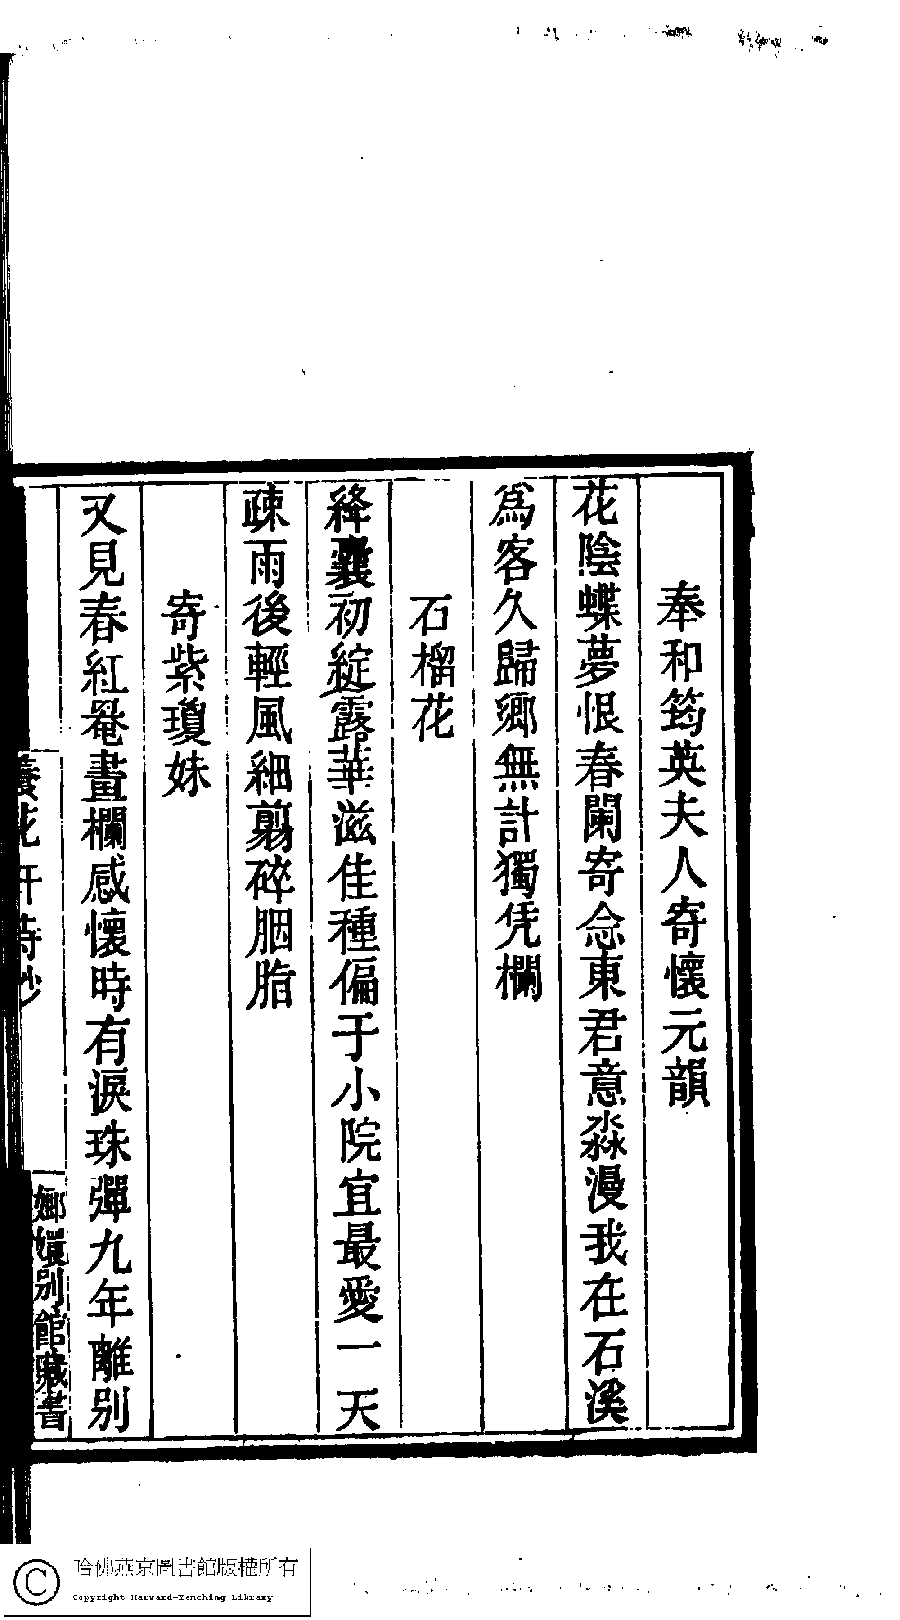 奉和筠英夫人寄懷元韻
花陰蝶夢恨春闌寄念東君意淼漫我在石溪
爲客久歸鄉無計獨凭欄
石榴花
絳囊初綻露華滋佳種偏于小院宜最愛一天
疎雨後輕風細剪碎胭脂
寄紫瓊妹
又見春紅罨畫欄感懷時有淚珠彈九年離別
養花軒詩抄
嫏嬛別館藏書
哈佛燕京圖書館版權所有
Copyright Harvard-Yenching Library